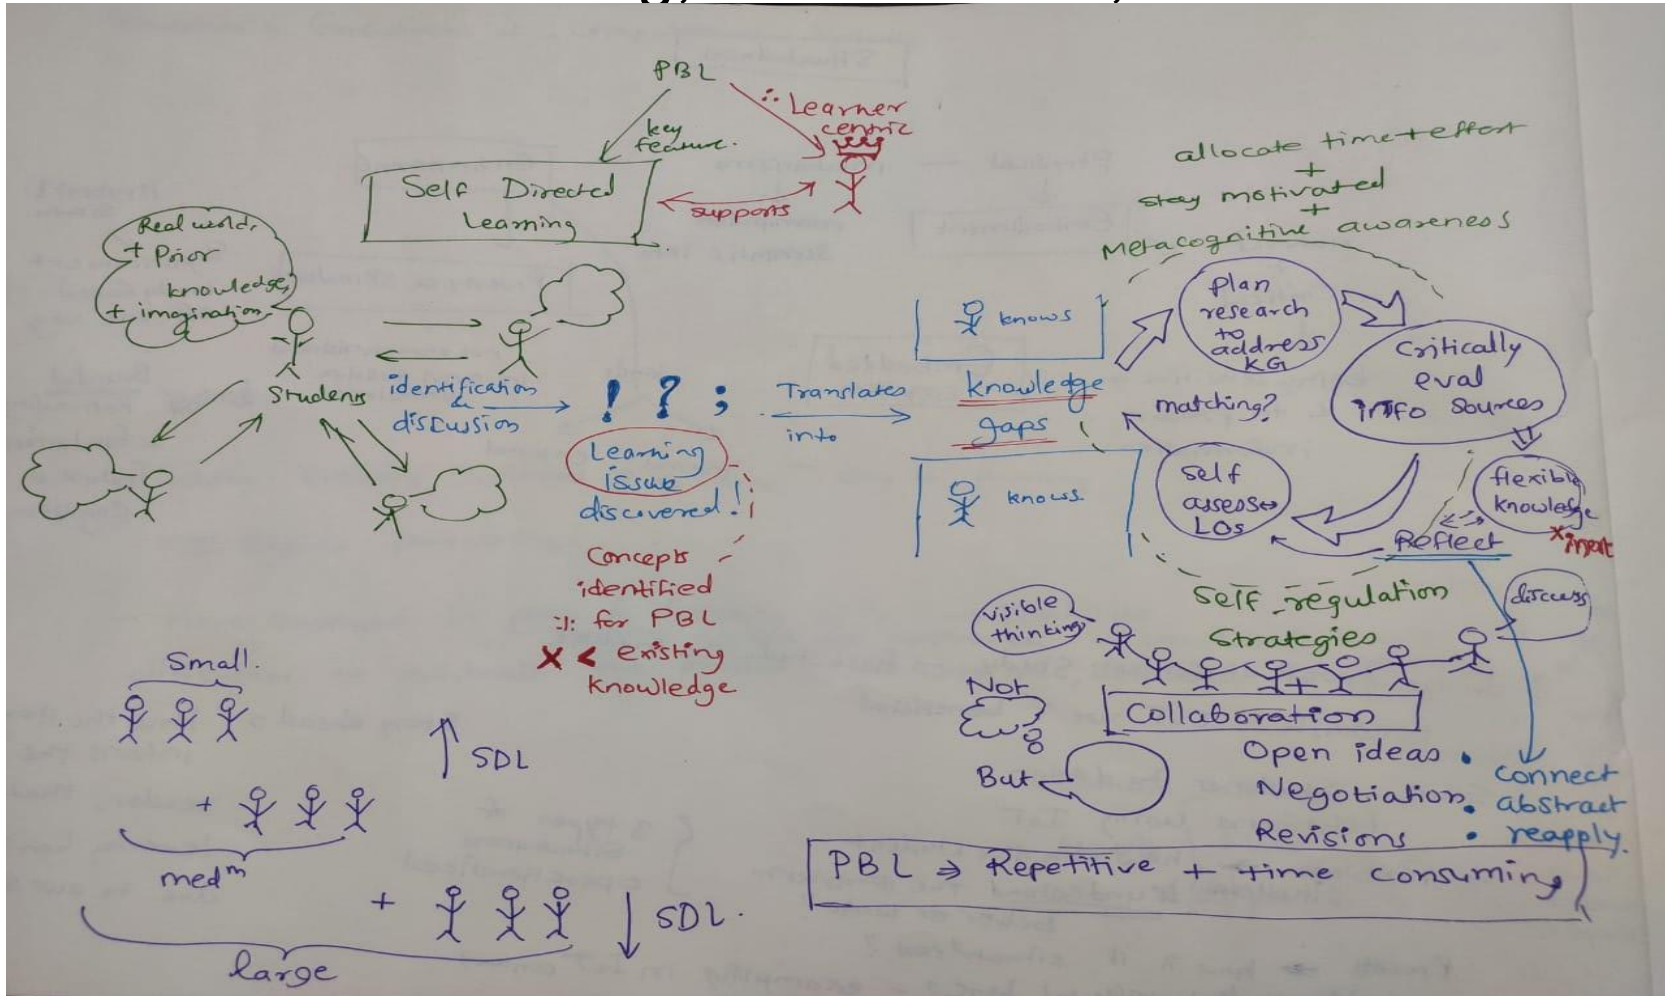 PBL
key
feature.
∴ Learner
centric
Self Directed
Learning
supports
Real world,
+ Prior
knowledge,
+ imagination
Students
identification
&
discussion
! ? ;
Learning
issue
discovered!
Concepts
identified
for PBL
X < existing
knowledge
Translates
into
knows
knowledge
gaps
knows
allocate time + effort
+
stay motivated
+
Metacognitive awareness
plan
research
to
address
KG
Critically
eval
info sources
matching?
self
assesses
LOs
flexible
knowledge
x inert
Reflect
Self-regulation
Strategies
visible
thinking
discuss
+
Not
Collaboration
But
Open ideas •
Negotiation •
Revisions •
connect
abstract
reapply.
PBL ⇒ Repetitive + time consuming
Small.
↑ SDL
+
medm
+
↓ SDL.
large